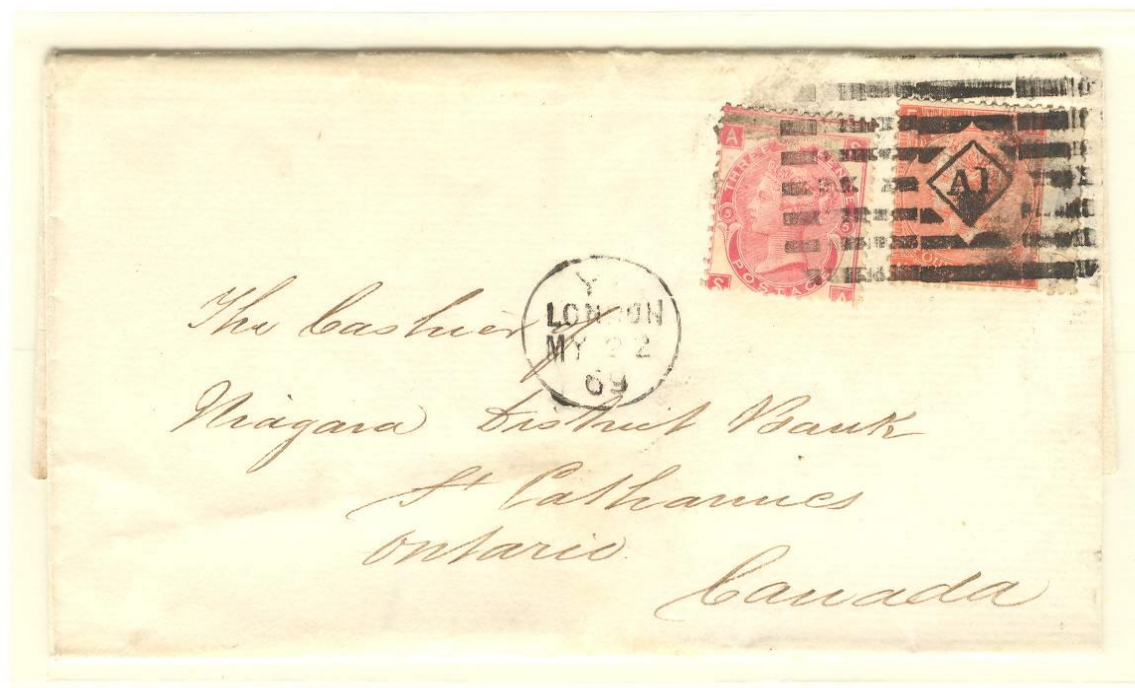 A S
THREE PENCE
5 5
POSTAGE
S A
A1
Y
LONDON
MY 22
69
The Cashier of
Niagara District Bank
St Catharines
Ontario
Canada